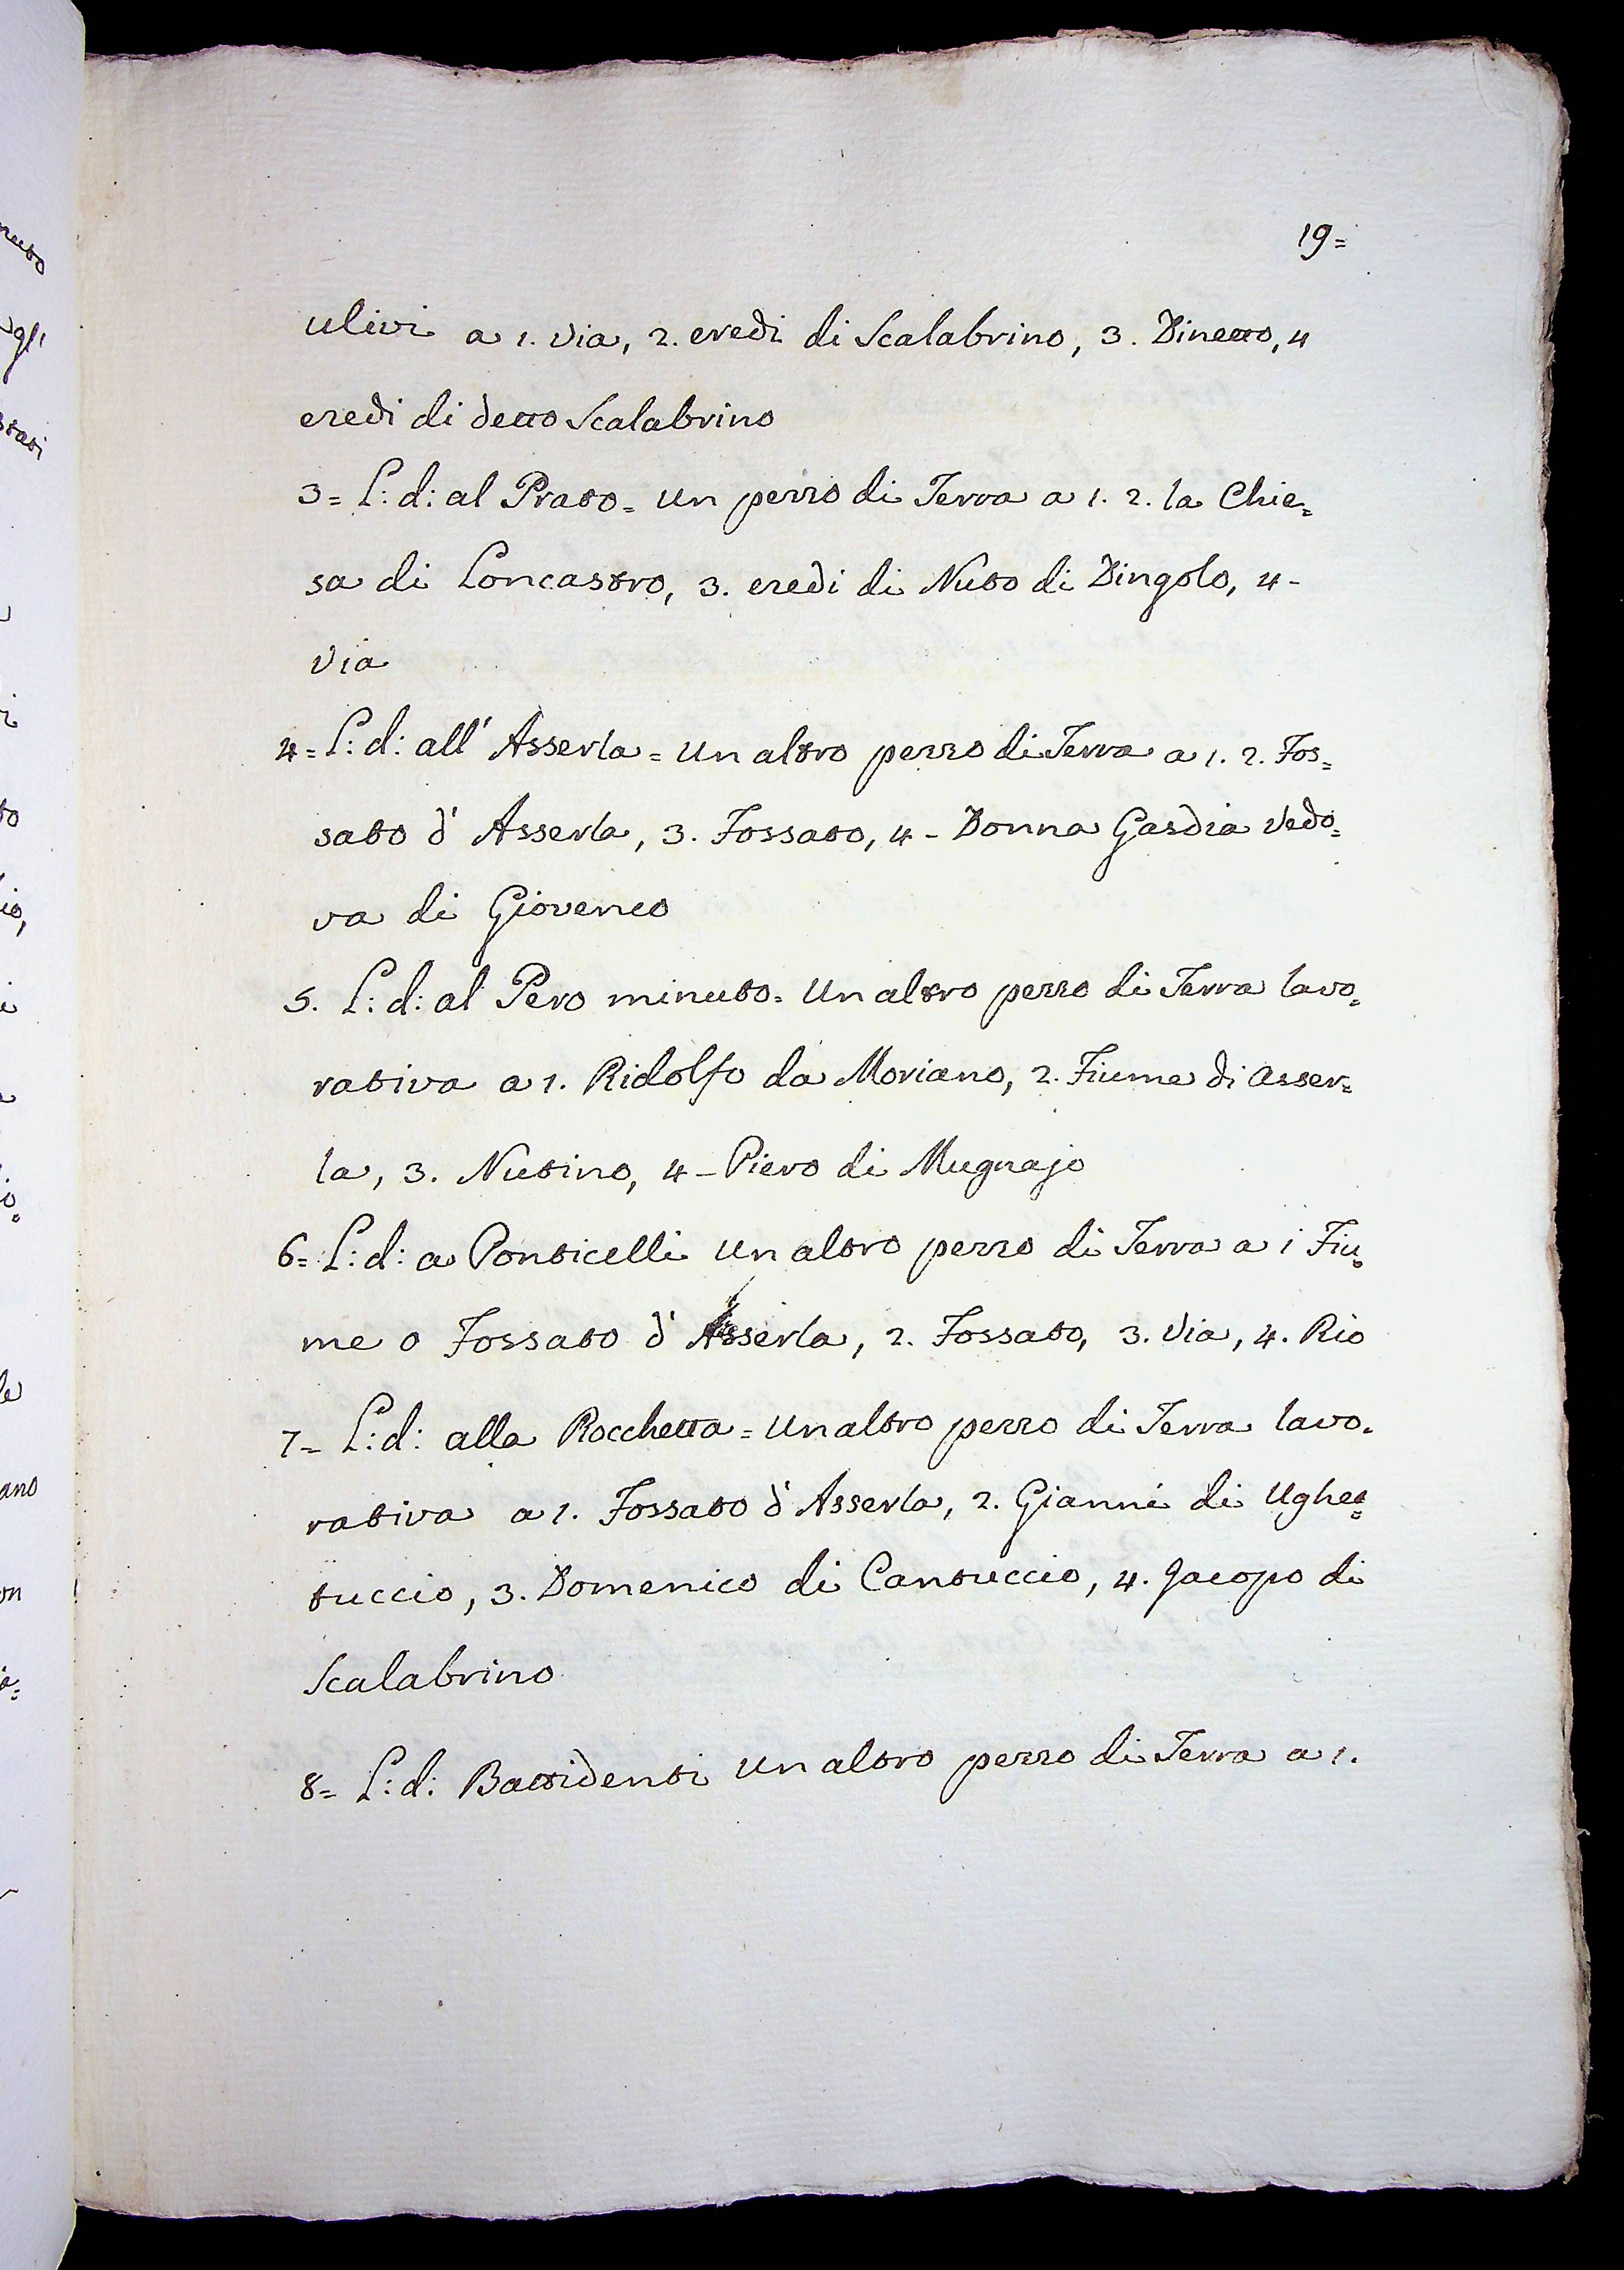 19=
ulivi a 1. via, 2. eredi di Scalabrino, 3. Dinetto, 4
eredi di detto Scalabrino
3= L: d: al Prato= un pezzo di Terra a 1. 2. la Chie=
sa di Loncastro, 3. eredi di Nuto di Dingolo, 4-
via
4= L: d: all' Asserla= un altro pezzo di Terra a 1. 2. Fos=
sato d' Asserla, 3. Fossato, 4- Donna Gasdia vedo=
va di Giovenco
5. L: d: al Pero minuto= un altro pezzo di Terra lavo=
rativa a 1. Ridolfo da Moriano, 2. Fiume di Asser=
la, 3. Nutino, 4- Piero di Mugnajo
6= L: d: a Ponticelli un altro pezzo di Terra a 1 Fiu=
me o Fossato d' Asserla, 2. Fossato, 3. via, 4. Rio
7= L: d: alla Rocchetta= un altro pezzo di Terra lavo=
rativa a 1. Fossato d' Asserla, 2. Gianni di Ughet=
tuccio, 3. Domenico di Cantuccio, 4. Jacopo di
Scalabrino
8= L: d: Battidenti un altro pezzo di Terra a 1.